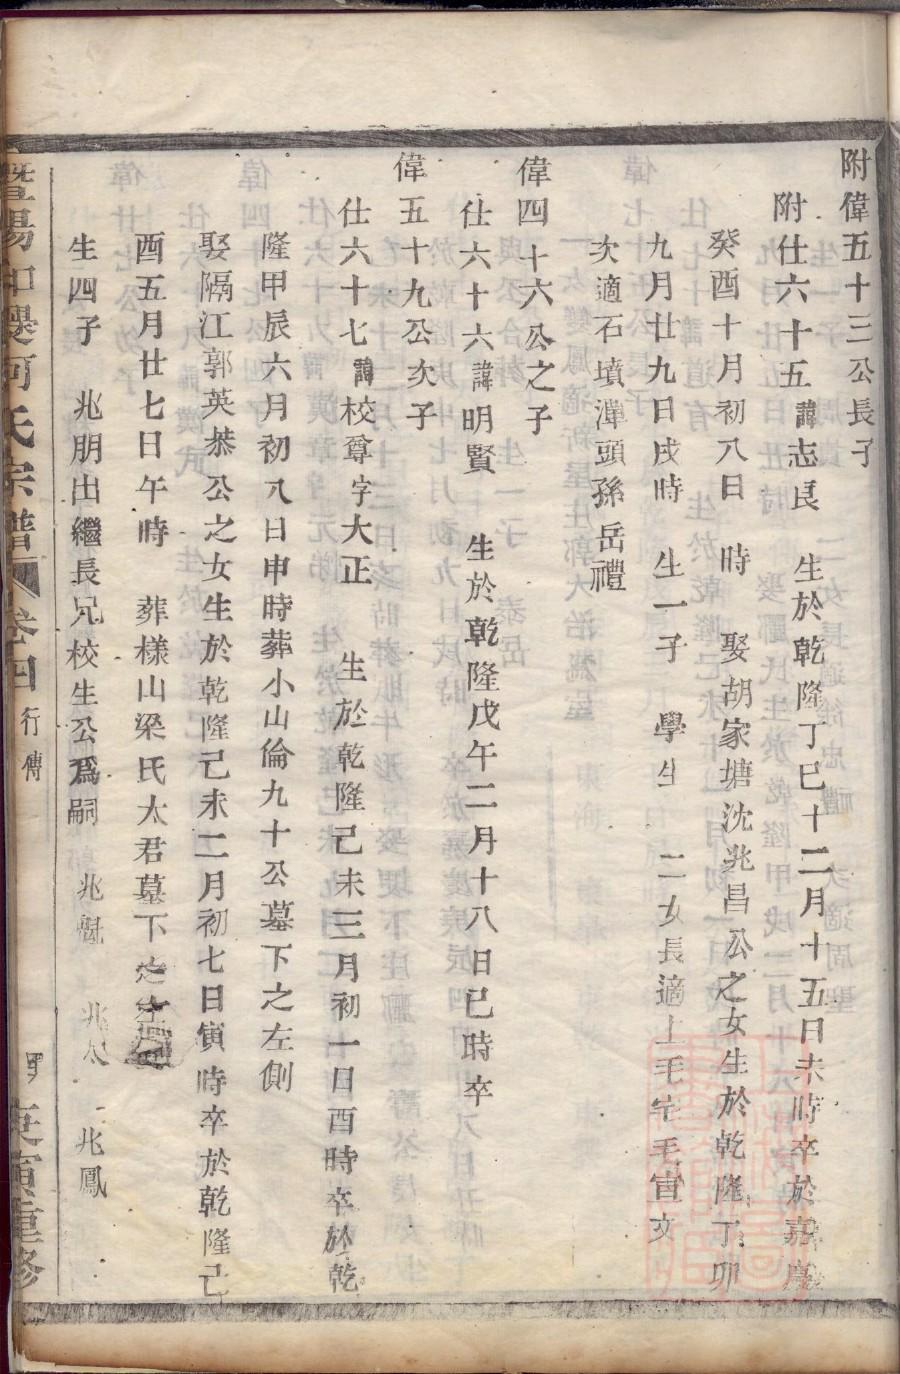 附偉五十三公長子
附仕六十五諱志良 生於乾隆丁巳十二月十五日未時卒於嘉慶
癸酉十月初八日 時 娶胡家塘沈兆昌公之女生於乾隆丁卯
九月廿九日戌時 生一子 學生 二女長適上毛宅毛宙文
次適石墳潭頭孫岳禮
偉四十六公之子
仕六十六諱明賢 生於乾隆戊午二月十八日巳時卒
偉五十九公次子
仕六十七諱校尊字大正 生於乾隆己未三月初一日酉時卒於乾
隆甲辰六月初八日申時葬小山倫九十公墓下之左側
娶隔江郭英恭公之女生於乾隆己未二月初七日寅時卒於乾隆己
酉五月廿七日午時 葬樣山梁氏太君墓下
生四子 兆朋出繼長兄校生公爲嗣 兆魁 兆太 兆鳳
暨陽 河氏宗譜 卷四 行傳 庚寅重修